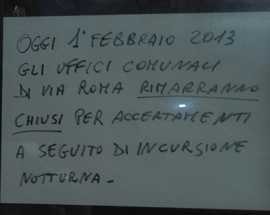 OGGI 1° FEBBRAIO 2013
GLI UFFICI COMUNALI
DI VIA ROMA RIMARRANNO
CHIUSI PER ACCERTAMENTI
A SEGUITO DI INCURSIONE
NOTTURNA -